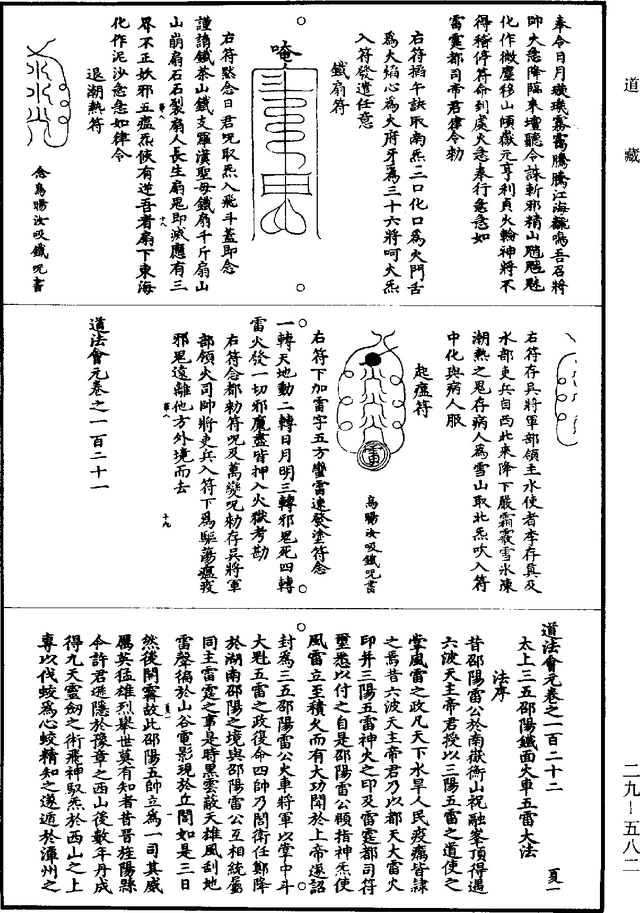 道藏
奉令日月
吾召將
帥大急降臨來壇聽令誅斬邪精山魈魍魅
化作微塵移山傾嶽元亨利貞火輪神將不
得稽停符命到處火急奉行急急如
雷霆都司帝君律令勑
右符掐午訣取南炁二口化口爲火門舌
爲火焰心爲火府牙爲三十六將呵火炁
入符發遣任意
鐵扇符
唵
右符默念日君呪取炁入飛斗蓋即念
謹請鐵茶山鐵支羅漢聖母鐵扇千斤扇山
山崩扇石石裂扇人長生扇鬼即滅應有三
界不正妖邪五瘟炁候有逆吾者扇下東海
化作泥沙急急如律令
退潮熱符
念烏暘汝吸鐵呪書
右符存兵將軍部領主水使者李存真及
水部吏兵自西北來降下嚴霜霰雪氷凍
潮熱之鬼存病人爲雪山取北炁吹入符
中化與病人服
起瘟符
烏暘汝吸鐵呪書
右符下加雷字五方蠻雷速發塗符念
一轉天地動二轉日月明三轉邪鬼死四轉
雷火發一切邪魔盡皆押入火獄考勘
右符念都勑符呪及萬變呪勑存兵將軍
部領火司帥將吏兵入符下爲驅蕩瘟疫
邪鬼遠離他方外境而去
道法會元卷之一百二十一
道法會元卷之一百二十二
太上三五邵陽鐵面火車五雷大法
法序
昔邵陽雷公於南嶽衡山祝融峯頂得遇
六波天主帝君授以三陽五雷之道使之
掌風雷之政凡天下水旱人民疫癘皆隷
之焉昔六波天主帝君乃以都天大雷火
印并三陽五雷神火之印及雷霆都司符
璽悉以付之自是邵陽雷公頤指神炁使
風雷立至積久而有大功聞於上帝遂詔
封爲三五邵陽雷公火車將軍以掌中斗
大魁五雷之政復命四帥乃閻衛任鄭降
於湖南邵陽之境與邵陽雷公互相統屬
同主雷霆之事是時黑雲蔽天雄風刮地
雷聲徧於山谷電影現於立間如是三日
然後開霽故此邵陽五帥立爲一司其威
厲英猛雄烈舉世莫有知者昔晉旌陽縣
令許君遜隱於豫章之西山後數年丹成
得九天靈劒之術飛神馭炁於西山之上
專以伐蛟爲心蛟精知之遂遁於潭州之
二九－五八二